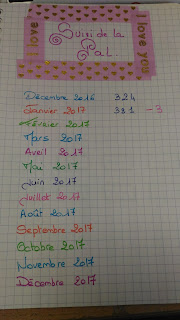 I love
Suivi de la
Pal
I love you
Décembre 2016 324
Janvier 2017 321 -3
Février 2017
Mars 2017
Avril 2017
Mai 2017
Juin 2017
Juillet 2017
Août 2017
Septembre 2017
Octobre 2017
Novembre 2017
Décembre 2017